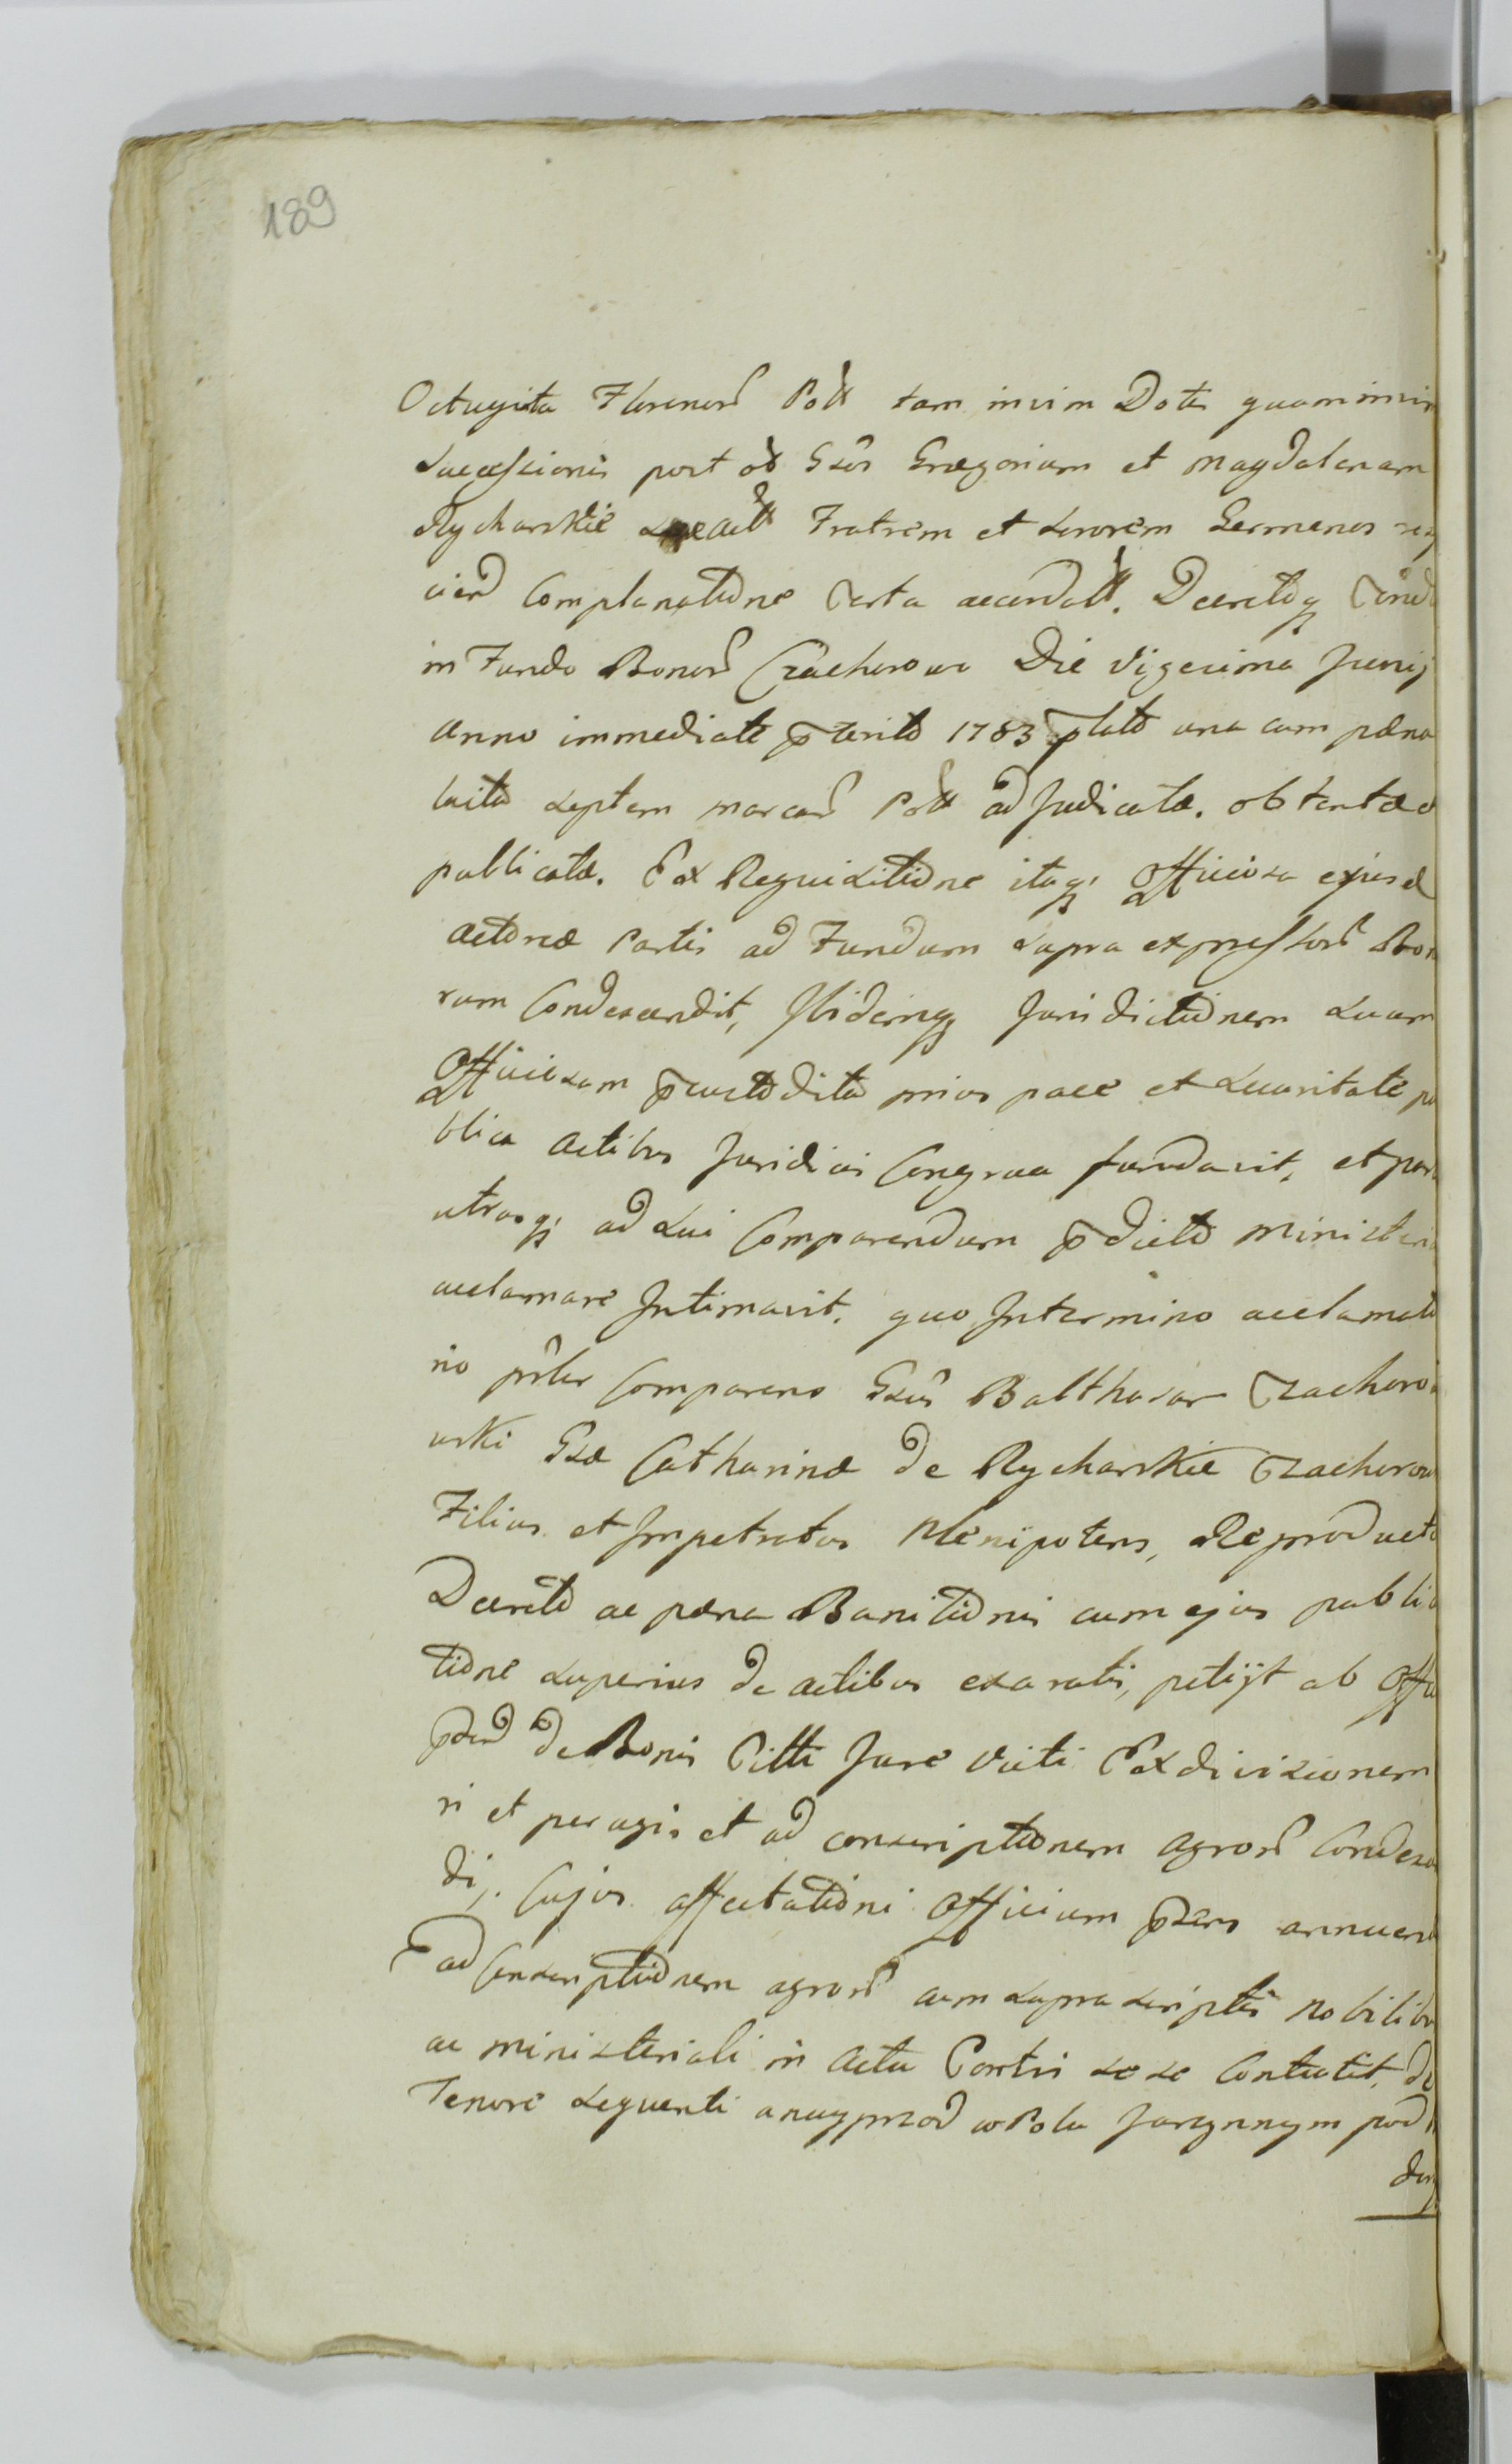 189
Octuginta Florenor Poll tam in vim Dotis quam in vim
Successionis post ol Gsos Gregorium et Magdalenam
Rycharskie Fratrem et Sororem Germanos
Complanatione Decretoq
in Fundo Bonor Czacherowo Die Vigesima Junij
anno immediate pterito 1783 plato una cum pæna
luita septem marcar Poll adjudicatæ. obtentæ
publicatæ. Ex Requisitione itaq; Officiosa ejusd
Actoreæ Partis ad Fundum supra expressor Bon
rum Condescendit, Ibidemq Jurisdictionem suam
Officiosam pcustodita prius pace et securitate pu
blica Actibus Juridicis Congrua fundavit, et par
utrasq; ad sui Comparendum pdicto Ministeria
acclamare Intimavit. quo In termino acclamatio
nis pnlr Comparens Gsus Balthasar Czachoro
wski Gsæ Catharinæ de Rycharskie Czacherow
Filius et Impetratus Plenipotens, Reproducto
Decreto ac pæna Banitionis cum ejus public
tione superius de actibus exaratis, petijt ab Offi
de Bonis Citti Jure Victi Exdivisionem
ri et peragi, et ad conscriptionem Agror Condesce
di, Cujus affectationi Officium annuend
ad Conscriptionem agror cum suprascriptis Nobilibu
ac Ministeriali in Actu Partis sese Contulit, de
Tenore sequenti a nayprzod w Polu Jarzynnym pod